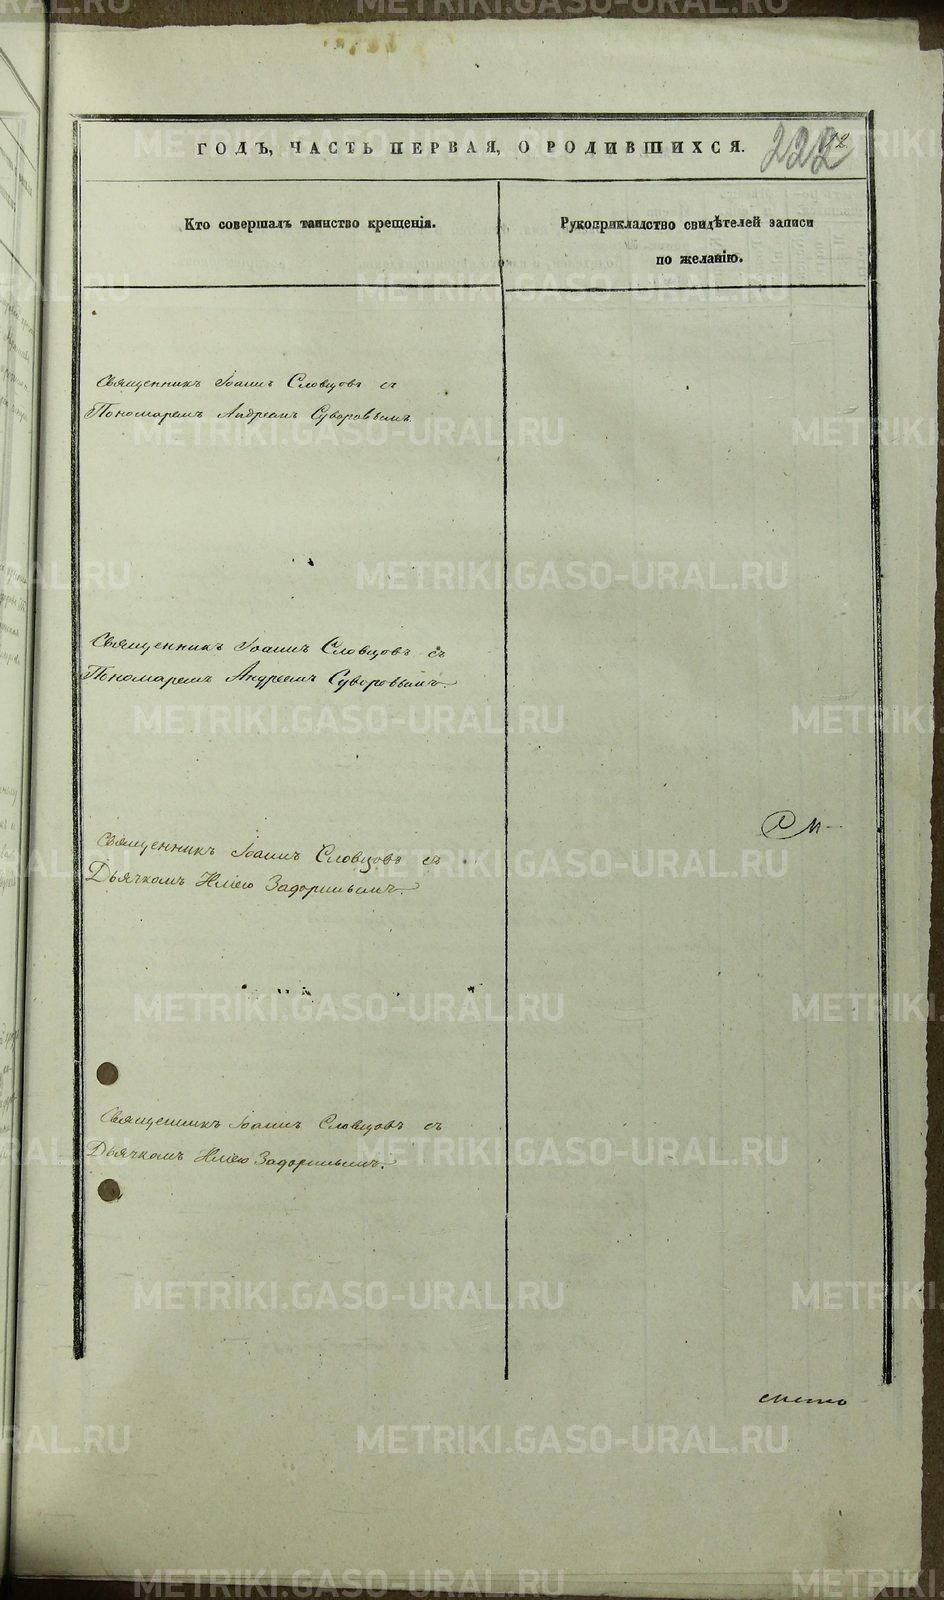 ГОДЪ, ЧАСТЬ ПЕРВАЯ, О РОДИВШИХСЯ.
222
Кто совершалъ таинство крещенія.
Рукоприкладство свидѣтелей записи
по желанію.
Священникъ Іоаннъ Словцовъ съ
Пономаремъ Андреемъ Суворовымъ.
Священникъ Іоаннъ Словцовъ съ
Пономаремъ Андреемъ Суворовымъ.
Священникъ Іоаннъ Словцовъ съ
Дьячкомъ Иліею Задоринымъ.
Священникъ Іоаннъ Словцовъ съ
Дьячкомъ Иліею Задоринымъ.
METRIKI.GASO-URAL.RU